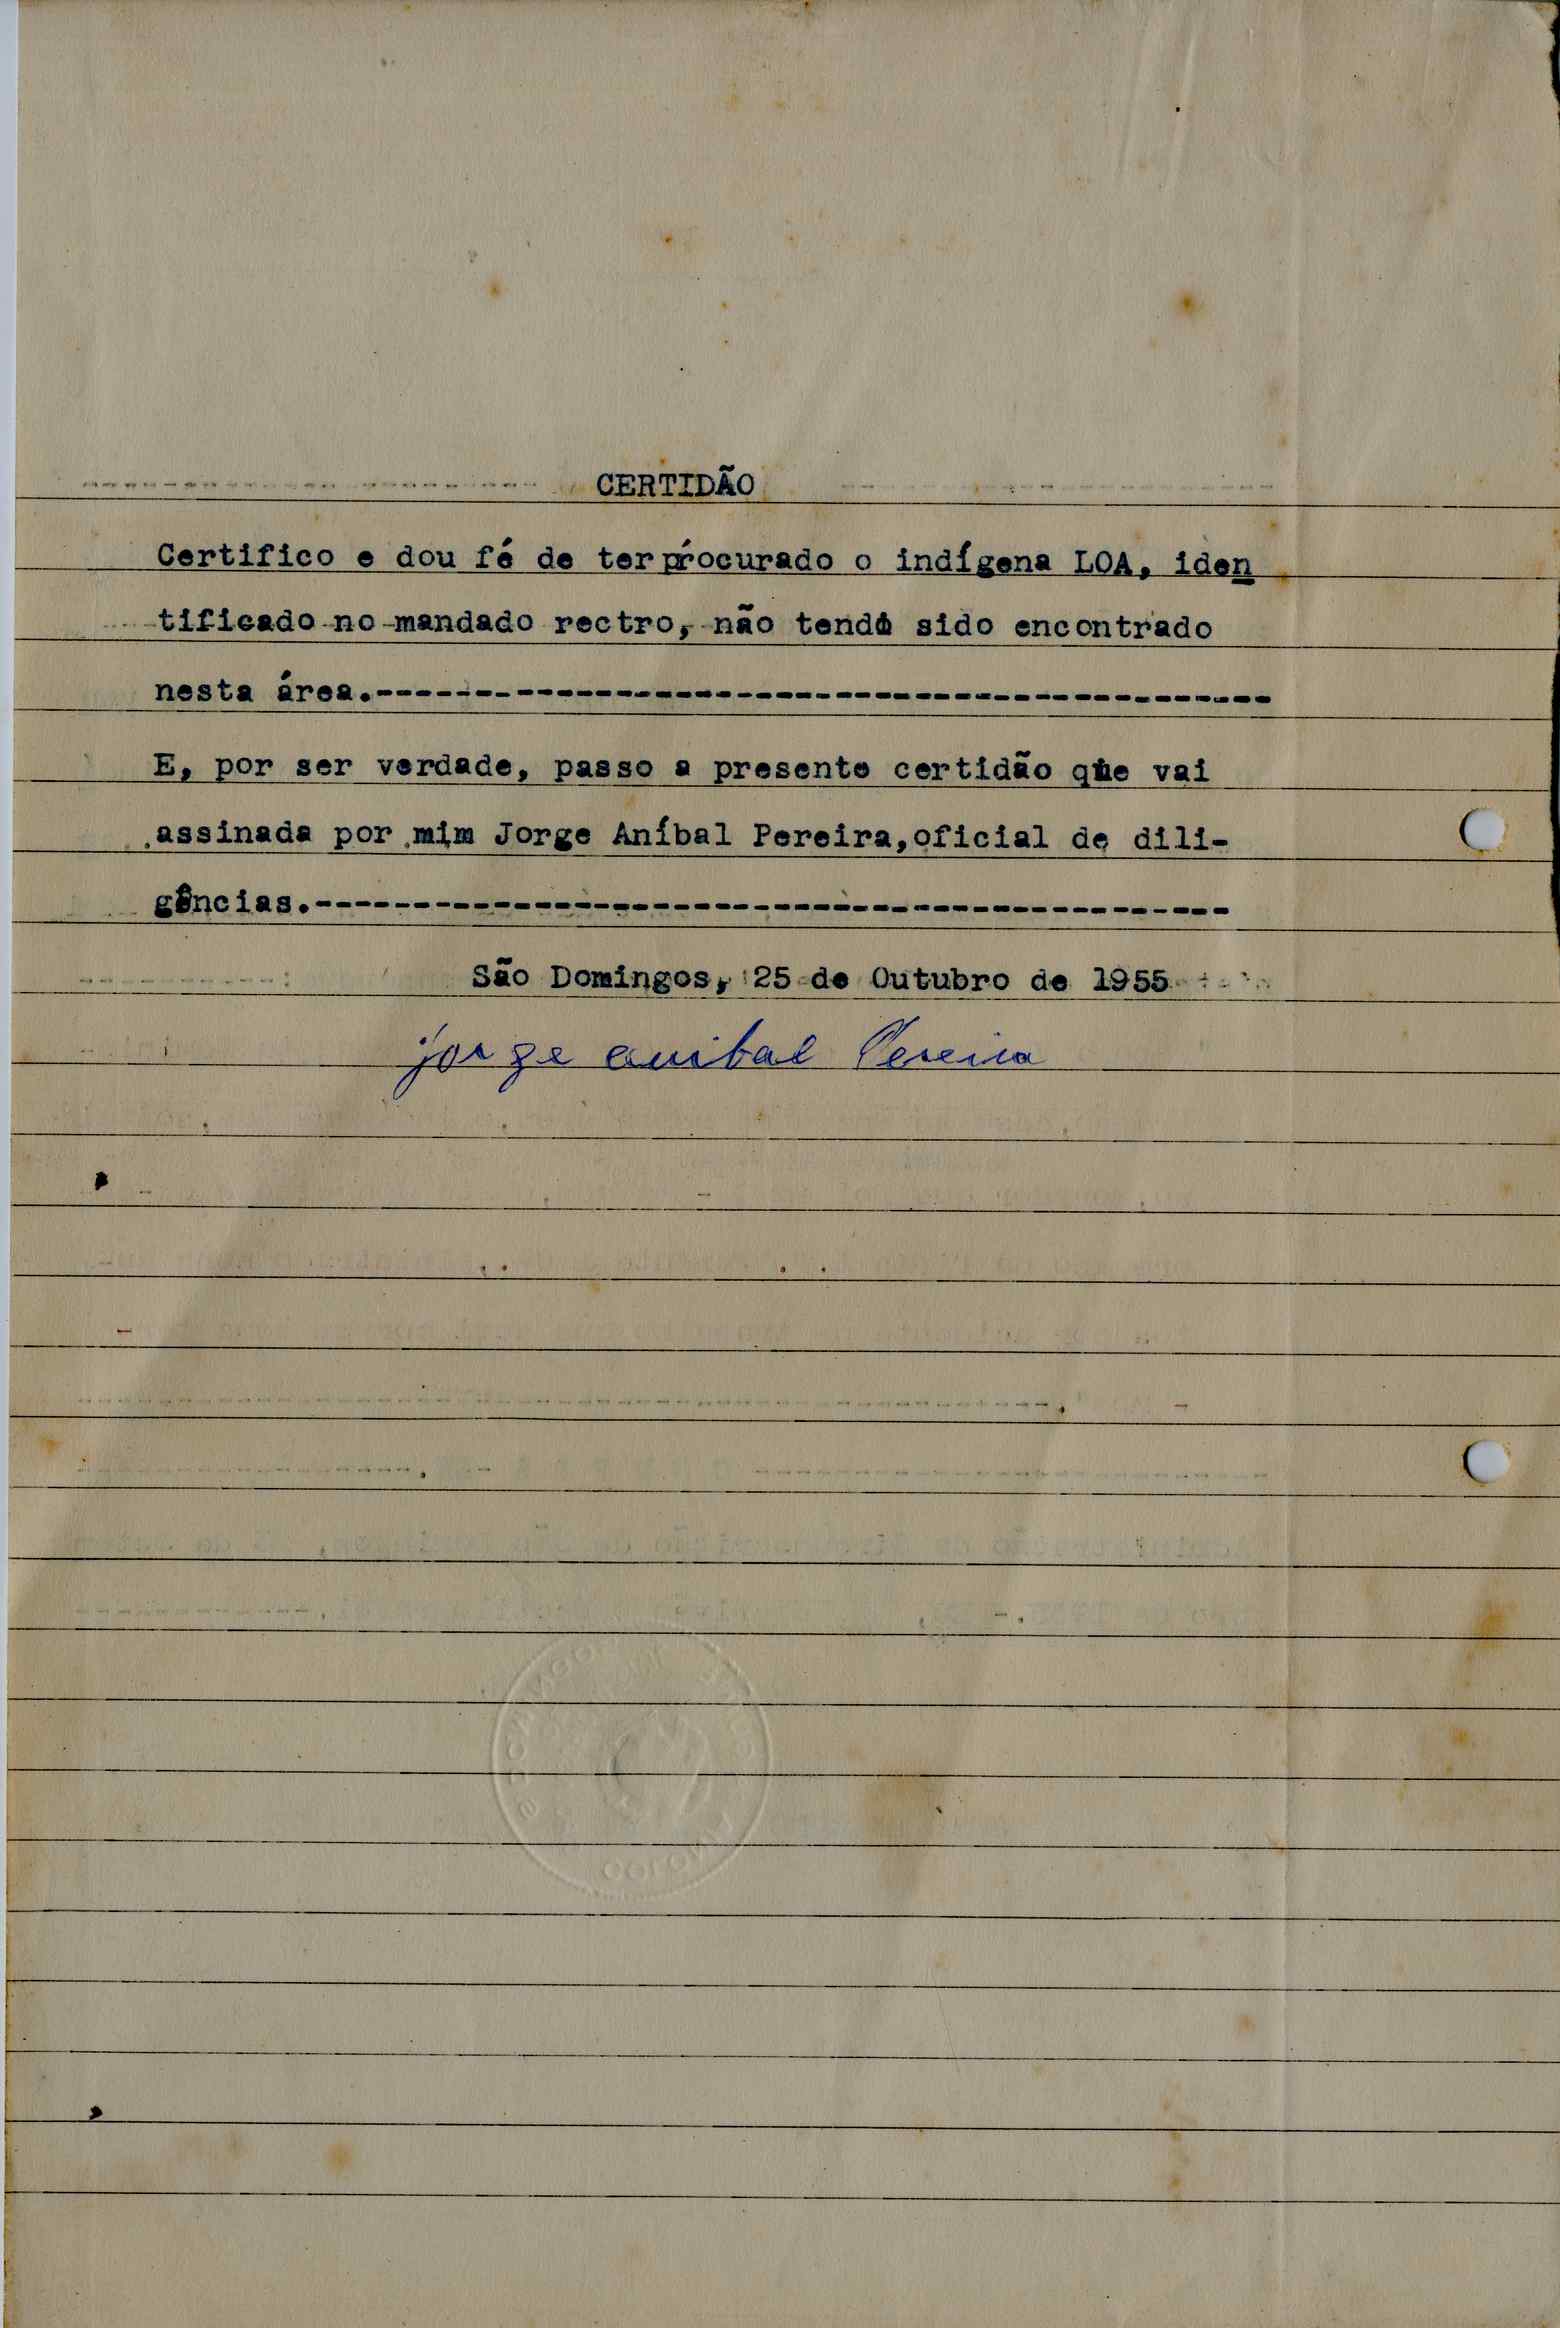 CERTIDÃO
Certifico e dou fé de ter procurado o indígena LOA, iden
tificado no mandado rectro, não tendo sido encontrado
nesta área.---------------------------------------------
E, por ser verdade, passo a presente certidão que vai
assinada por mim Jorge Aníbal Pereira,oficial de dili-
gências.-----------------------------------------------
São Domingos, 25 de Outubro de 1955
jorge anibal Pereira